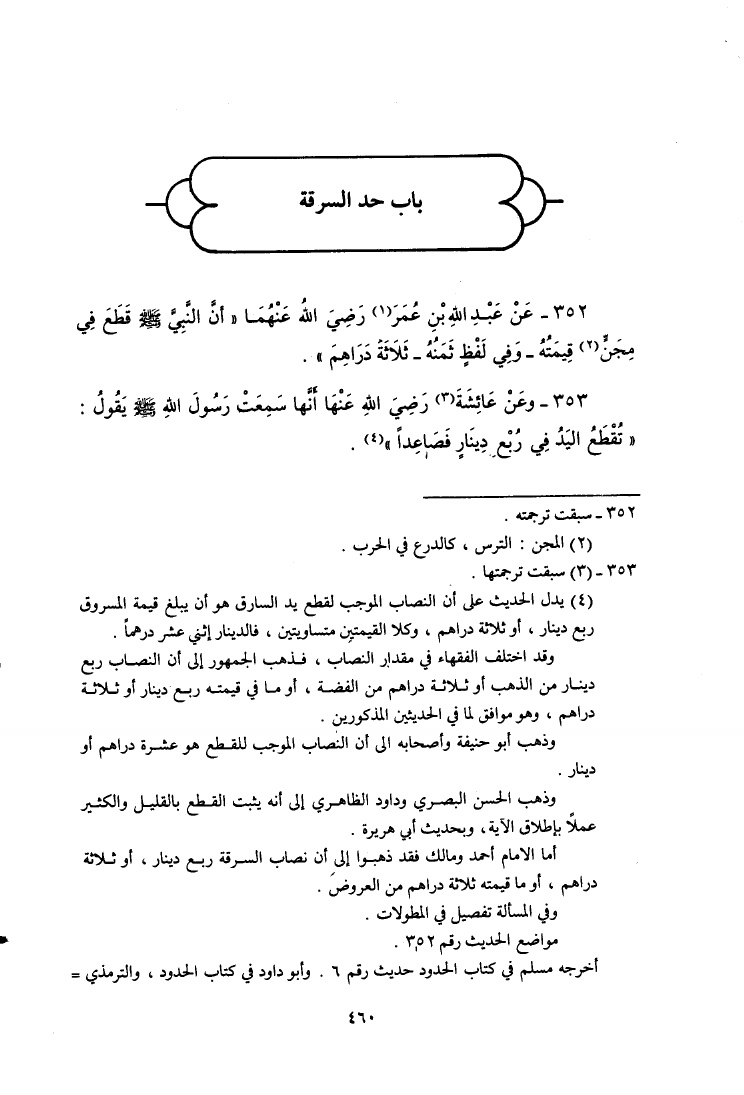 باب حد السرقة
٣٥٢ - عَنْ عَبْدِ اللهِ بْنِ عُمَرَ(١) رَضِيَ اللهُ عَنْهُمَا « أنَّ النَّبِيَّ ﷺ قَطَعَ فِي
مِجَنٍّ(٢) قِيمَتُهُ - وَفِي لَفْظٍ ثَمَنُهُ - ثَلاَثَةُ دَرَاهِمَ » .
٣٥٣ - وعَنْ عَائِشَةَ(٣) رَضِيَ اللهُ عَنْهَا أَنَّها سَمِعَتْ رَسُولَ اللهِ ﷺ يَقُولُ :
« تُقْطَعُ اليَدُ فِي رُبْعِ دِينَارٍ فَصَاعِداً »(٤) .
٣٥٢ - سبقت ترجمته .
(٢) المجن : الترس ، كالدرع في الحرب .
٣٥٣ - (٣) سبقت ترجمتها .
(٤) يدل الحديث على أن النصاب الموجب لقطع يد السارق هو أن يبلغ قيمة المسروق
ربع دينار ، أو ثلاثة دراهم ، وكلا القيمتين متساويتين ، فالدينار إثني عشر درهماً .
وقد اختلف الفقهاء في مقدار النصاب ، فذهب الجمهور إلى أن النصاب ربع
دينار من الذهب أو ثلاثة دراهم من الفضة ، أو ما في قيمته ربع دينار أو ثلاثة
دراهم ، وهو موافق لما في الحديثين المذكورين .
وذهب أبو حنيفة وأصحابه الى أن النصاب الموجب للقطع هو عشرة دراهم أو
دينار .
وذهب الحسن البصري وداود الظاهري إلى أنه يثبت القطع بالقليل والكثير
عملاً بإطلاق الآية ، وبحديث أبي هريرة .
أما الامام أحمد ومالك فقد ذهبوا إلى أن نصاب السرقة ربع دينار ، أو ثلاثة
دراهم ، أو ما قيمته ثلاثة دراهم من العروض .
وفي المسألة تفصيل في المطولات .
مواضع الحديث رقم ٣٥٢ .
أخرجه مسلم في كتاب الحدود حديث رقم ٦ . وأبو داود في كتاب الحدود ، والترمذي =
٤٦٠